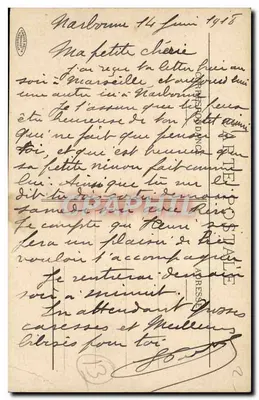 Narbonne 14 Juin 1918
Ma petite chérie
J'ai reçu ta lettre hier au
soir à Marseille, et aujourd'hui
une autre ici à Narbonne
Je t'assure que tu peux
être heureuse de ton petit
que ne fait que penser à
toi, et que est heureux que
sa petite minon fait comme
lui. Ainsi que tu me le
dit
Je compte que Henri se
fera un plaisir de
vouloir t'accompagner
Je rentrerai demain
soir à minuit.
En attendant grosses
caresses et Meilleurs
bises pour toi
13
CARTE POSTALE
CORRESPONDANCE
ADRESSE
CARTE POSTALE